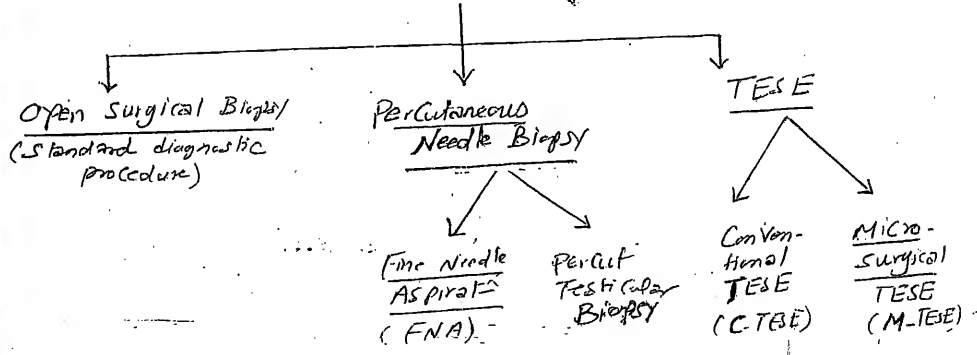 Open Surgical Biopsy
(Standard diagnostic
procedure)
Percutaneous
Needle Biopsy
TESE
Fine Needle
Aspirat=
(FNA)
Percut
Testicular
Biopsy
Conven-
tional
TESE
(C-TESE)
Micro-
surgical
TESE
(M-TESE)